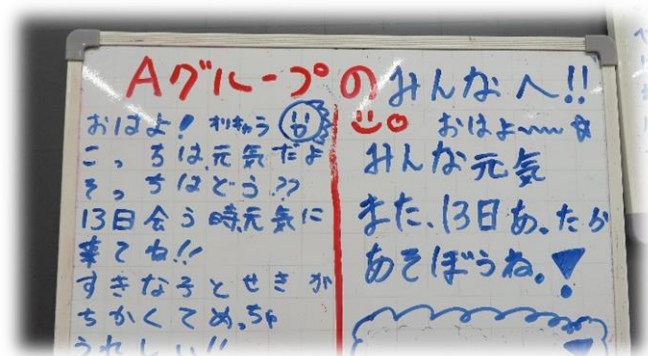 Aグループのみんなへ!!
おはよ!
こっちは元気だよ
そっちはどう??
13日会う時元気に
来てね!!
すきな子とせきが
ちかくてめっちゃ
うれしい!!
おはよ〜〜☆
みんな元気
また、13日あったら
あそぼうね。